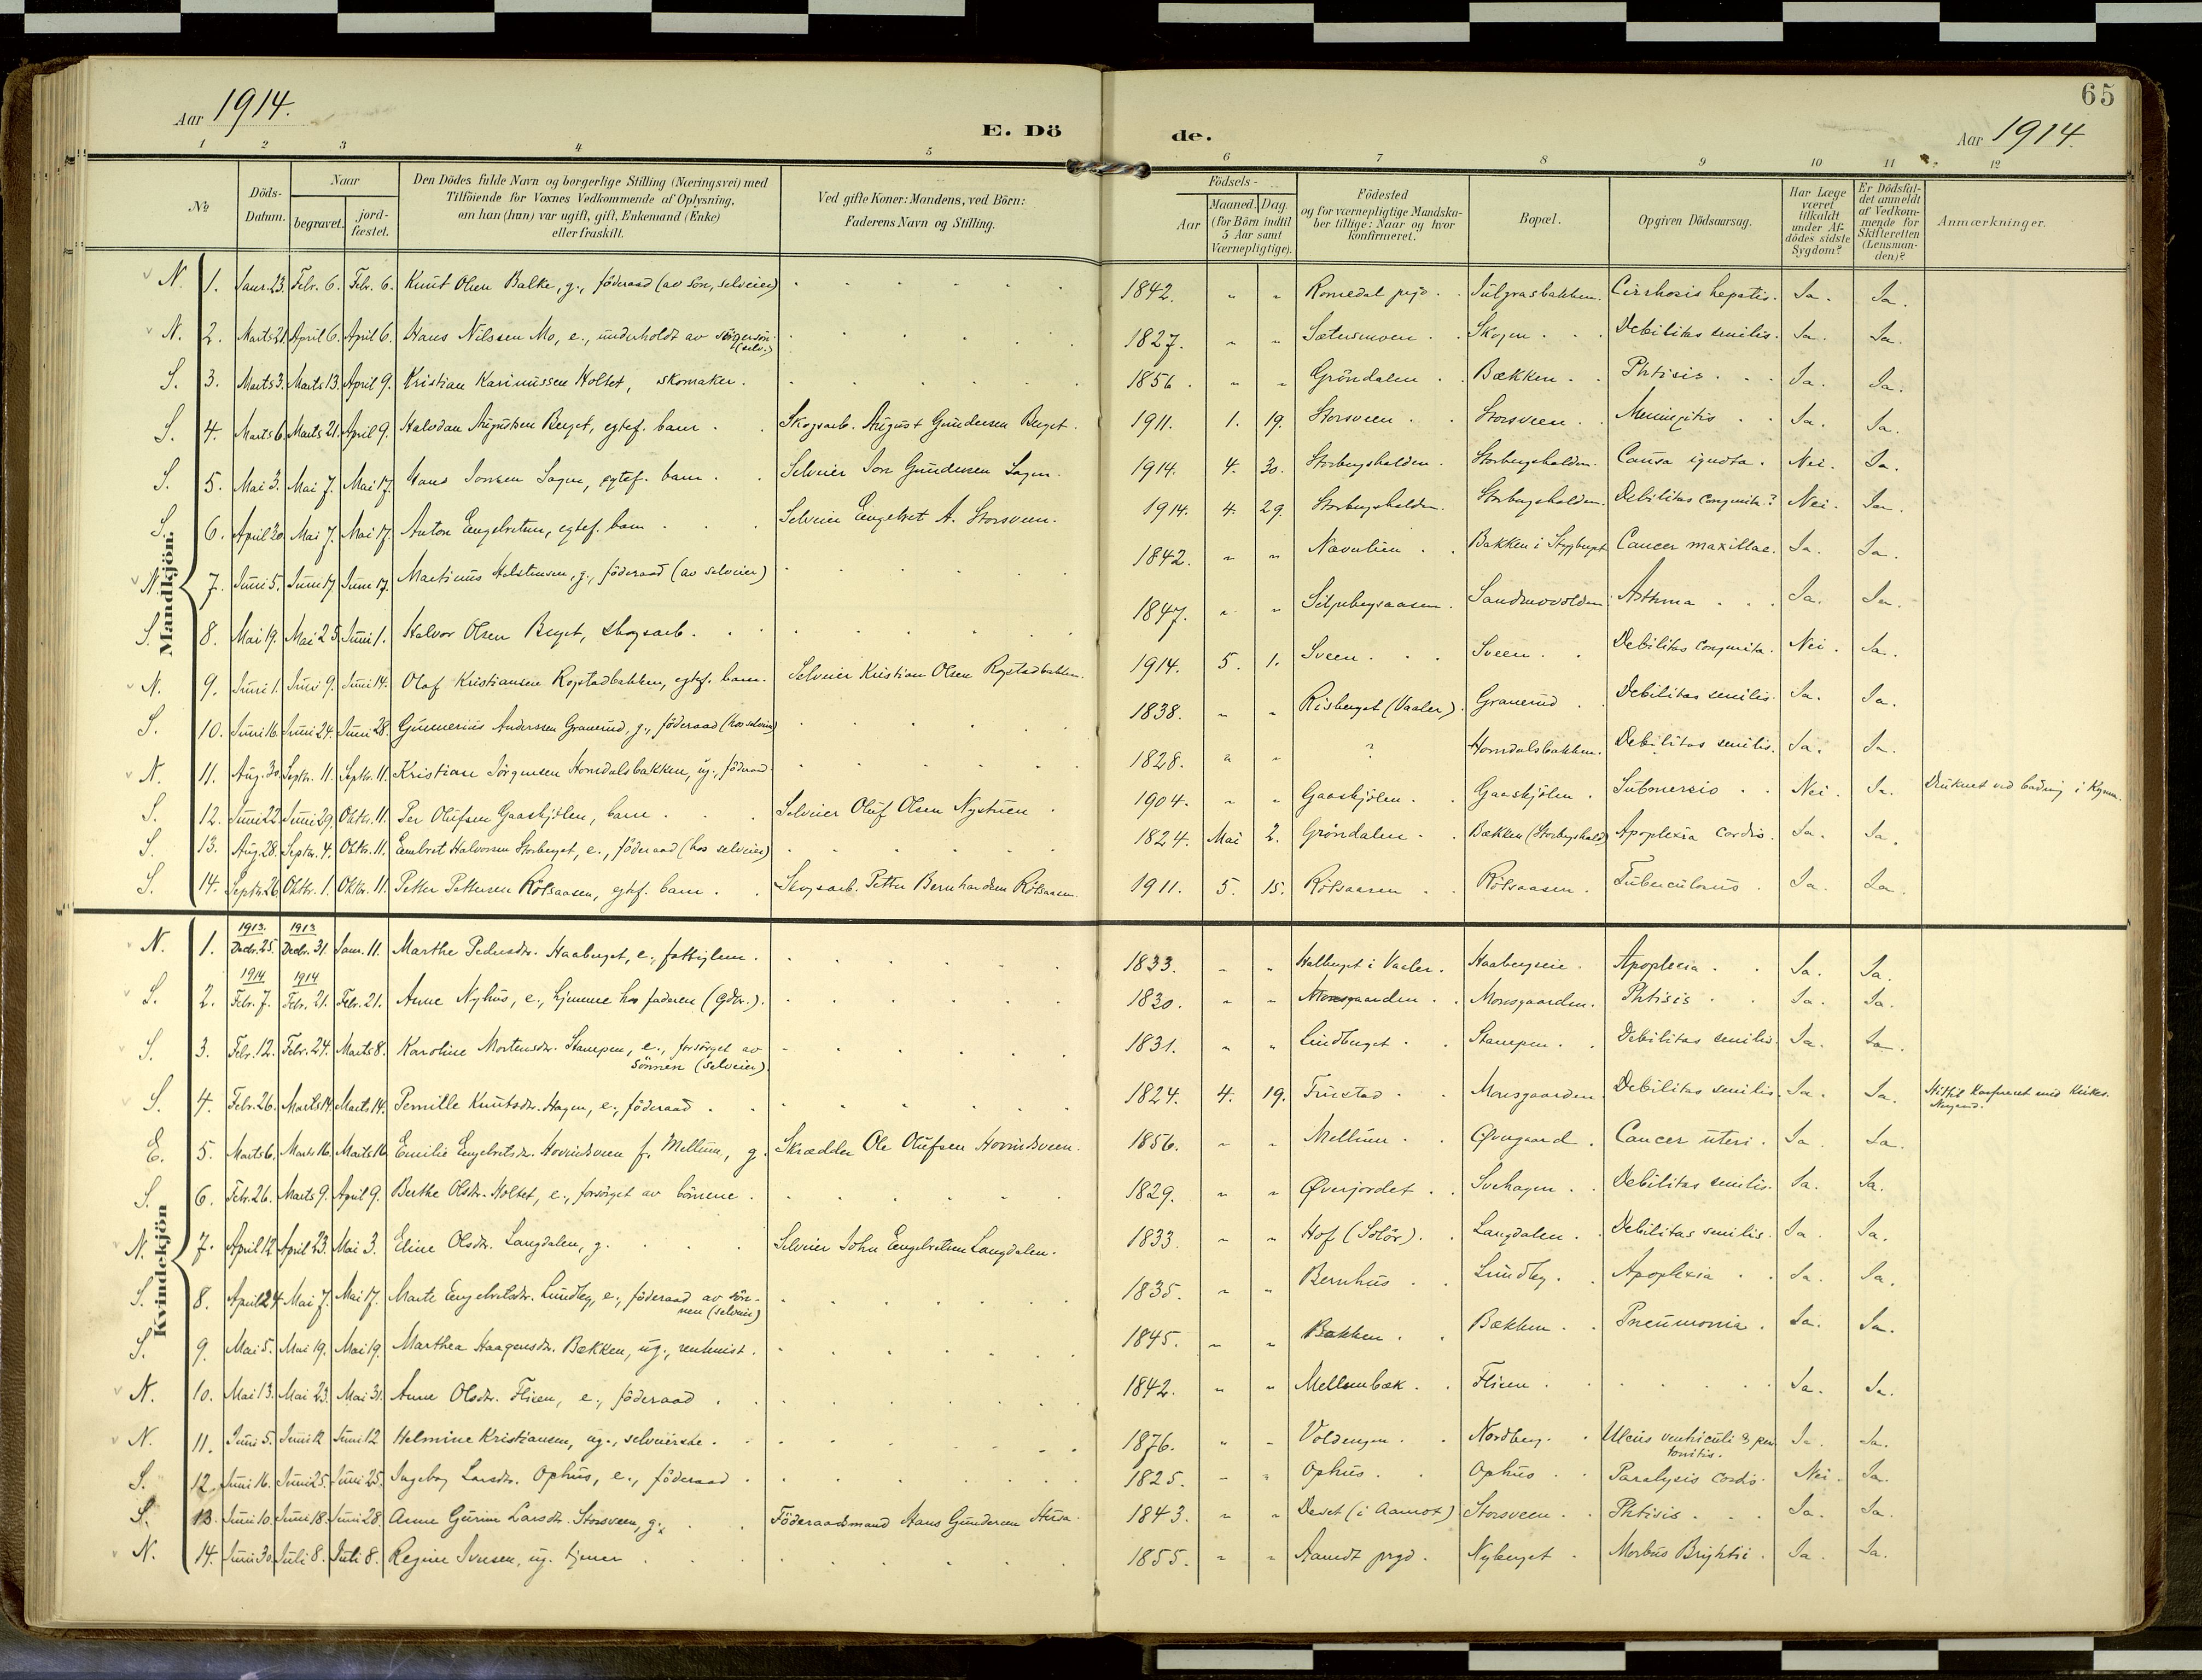 65
Aar 1914.
E. Döde.
Aar 1914.
1 2 3 4 5 6 7 8 9 10 11 12
No
Döds-Datum.
Naar
begravet.
jord-fæstet.
Den Dödes fulde Navn og borgerlige Stilling (Næringsvei) med
Tilföiende for Voxnes Vedkommende af Oplysning,
om han (hun) var ugift, gift, Enkemand (Enke)
eller fraskilt.
Ved gifte Koner: Mandens, ved Börn:
Faderens Navn og Stilling.
Födsels-
Aar
Maaned. Dag.
(for Börn indtil
5 Aar samt
Værnepligtige).
Födested
og for værnepligtige Mandska-
ber tillige: Naar og hvor
konfirmeret.
Bopæl.
Opgiven Dödsaarsag.
Har Læge
været
tilkaldt
under Af-
dödes sidste
Sygdom?
Er Dödsfal-
det anmeldt
af Vedkom-
mende for
Skifteretten
(Lensman-
den)?
Anmærkninger.
Mandkjön.
N. 1. Janr. 23. Febr. 6. Febr. 6. Knut Olsen Balke, g., föderaad (av sön, selveier) 1842. " " Romedal prgj. Julgrasbakken. Cirrhosis hepatis. Ja. Ja.
N. 2. Marts 21. April 6. April 6. Hans Nilssen Mo, e., underholdt av (selv.) 1827. " " Sætermoen. Skogen. Debilitas senilis. Ja. Ja.
S. 3. Marts 3. Marts 13. April 9. Kristian Karinussen Holtet, skomaker. 1856. " " Gröndalen. Bækken. Phtisis. Ja. Ja.
S. 4. Marts 6. Marts 21. April 9. Halvdan Augustsen Berget, egtef. barn. Skogsarb. August Gundersen Berget. 1911. 1. 19. Storsveen. Storsveen. Meningitis. Ja. Ja.
S. 5. Mai 3. Mai 7. Mai 17. Hans Jonsen Sagen, egtef. barn. Selveier Jon Gundersen Sagen. 1914. 4. 30. Storbergshalden. Storbergshalden. Causa ignota. Nei. Ja.
S. 6. April 30. Mai 7. Mai 17. Anton Engebretsen, egtef. barn. Selveier Engebret A. Storsveen. 1914. 4. 29. Storbergshalden. Storbergshalden. Debilitas congenita? Nei. Ja.
N. 7. Juni 5. Juni 17. Juni 17. Martinus Halstensen, g., föderaad (av selveier) 1842. " " Næverlien. Bakken i Cancer maxillae. Ja. Ja.
S. 8. Mai 19. Mai 25. Juni 1. Halvor Olsen Berget, skogsarb. 1847. " " Sandmovolden. Asthma. Ja. Ja.
N. 9. Juni 1. Juni 9. Juni 14. Olaf Kristiansen Rogstadbakken, egtef. barn. Selveier Kristian Olsen Rogstadbakken. 1914. 5. 1. Sveen. Sveen. Debilitas congenita. Nei. Ja.
S. 10. Juni 16. Juni 24. Juni 28. Gunnerius Anderssen Granerud, g., föderaad (hos selveier) 1838. " " Risberget (Vaaler). Granerud. Debilitas senilis. Ja. Ja.
N. 11. Aug. 30. Septr. 11. Septr. 11. Kristian Jörgensen Horndalsbakken, ug., föderaad. 1828. " " ? Horndalsbakken. Debilitas senilis. Ja. Ja.
S. 12. Juni 22. Juni 29. Oktr. 11. Per Olufsen Gaaskjölen, barn. Selveier Oluf Olsen Nystuen 1904. " " Gaaskjölen. Gaaskjölen. Submersio. Nei. Ja. Druknet ved badning i
S. 13. Aug. 28. Septr. 4. Oktr. 11. Embret Halvorsen Storberget, e., föderaad (hos selveier) 1824. Mai 2. Gröndalen. Bækken (Storbergshald) Apoplexia cordis. Ja. Ja.
S. 14. Septr. 26. Oktr. 1. Oktr. 11. Petter Pettersen Rölsaasen, egtef. barn. Skogsarb. Petter Bernhardsen Rölsaasen. 1911. 5. 15. Rölsaasen. Rölsaasen. Tuberculosis. Ja. Ja.
Kvindekjön
N. 1. 1913. Decbr. 25. 1913 Decbr. 31. Janr. 11. Marthe Pedersdtr. Haaberget, e., fattiglem. 1833. " " Halberget i Vaaler. Haabergseie. Apoplexia. Ja. Ja.
S. 2. 1914 Febr. 7. 1914 Febr. 21. Febr. 21. Anne Nyhus, e., hjemme hos faderen (gdbr.). 1830. " " Monsgaarden. Monsgaarden. Phtisis. Ja. Ja.
S. 3. Febr. 12. Febr. 24. Marts 8. Karoline Mortensdtr. Stampen, e., forsörget av
sönnen (selveier) 1831. " " Lindberget. Stampen. Debilitas senilis. Ja. Ja.
S. 4. Febr. 26. Marts 14. Marts 14. Pernille Knutsdtr. Hagen, e., föderaad. 1824. 4. 19. Frustad. Monsgaarden. Debilitas senilis. Ja. Ja.
E. 5. Marts 6. Marts 16. Marts 16. Emilie Engebretsdtr. Hovindsveen f. Mellum, g. Skrædder Ole Olufsen Hovindsveen. 1856. " " Mellum. Øvergaard. Cancer uteri. Ja. Ja.
S. 6. Febr. 26. Marts 9. April 9. Berthe Olsdtr. Holtet, e., forsörget av börnene. 1829. " " Øverjordet. Svehagen. Debilitas senilis. Ja. Ja.
N. 7. April 12. April 23. Mai 3. Eline Olsdtr. Langdalen, g. Selveier John Engebretsen Langdalen. 1833. " " Hof (Solör). Langdalen. Debilitas senilis. Ja. Ja.
S. 8. April 24. Mai 7. Mai 17. Marte Engebretsdtr. Lundby, e., föderaad av sön-
nen (selveier) 1835. " " Bernhus. Lundby. Apoplexia. Ja. Ja.
S. 9. Mai 5. Mai 19. Mai 19. Marthea Haagensdtr. Bækken, ug., 1845. " " Bækken. Bækken. Pneumonia. Ja. Ja.
N. 10. Mai 13. Mai 23. Mai 31. Anne Olsdtr. Flisen, e., föderaad. 1842. " " Mellembæk. Flisen. Ja. Ja.
N. 11. Juni 5. Juni 12 Juni 12 Helmine Kristiansen, ug., selveierske. 1876. " " Voldengen. Nordberg. Ulcus ventriculi & peri
tonitis. Ja. Ja.
S. 12. Juni 16. Juni 25. Juni 25. Ingebor Larsdtr. Ophus, e., föderaad. 1825. " " Ophus. Ophus. Paralysis cordis. Nei. Ja.
S. 13. Juni 10. Juni 18. Juni 28. Anne Gurine Larsdtr. Storsveen, g. Föderaadsmand Hans Gundersen 1843. " " Deset (i Aamot) Storsveen. Phtisis. Ja. Ja.
N. 14. Juni 30. Juli 8. Juli 8. Regine Iversen, ug. tjener 1855. " " Aamot prgd. Nyberget. Morbus Brightii. Ja. Ja.